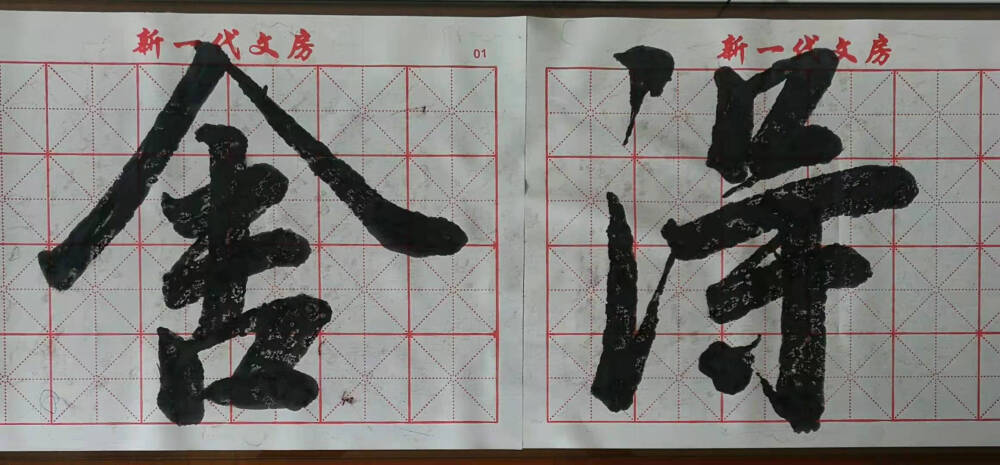 新一代文房 01
新一代文房
舍得